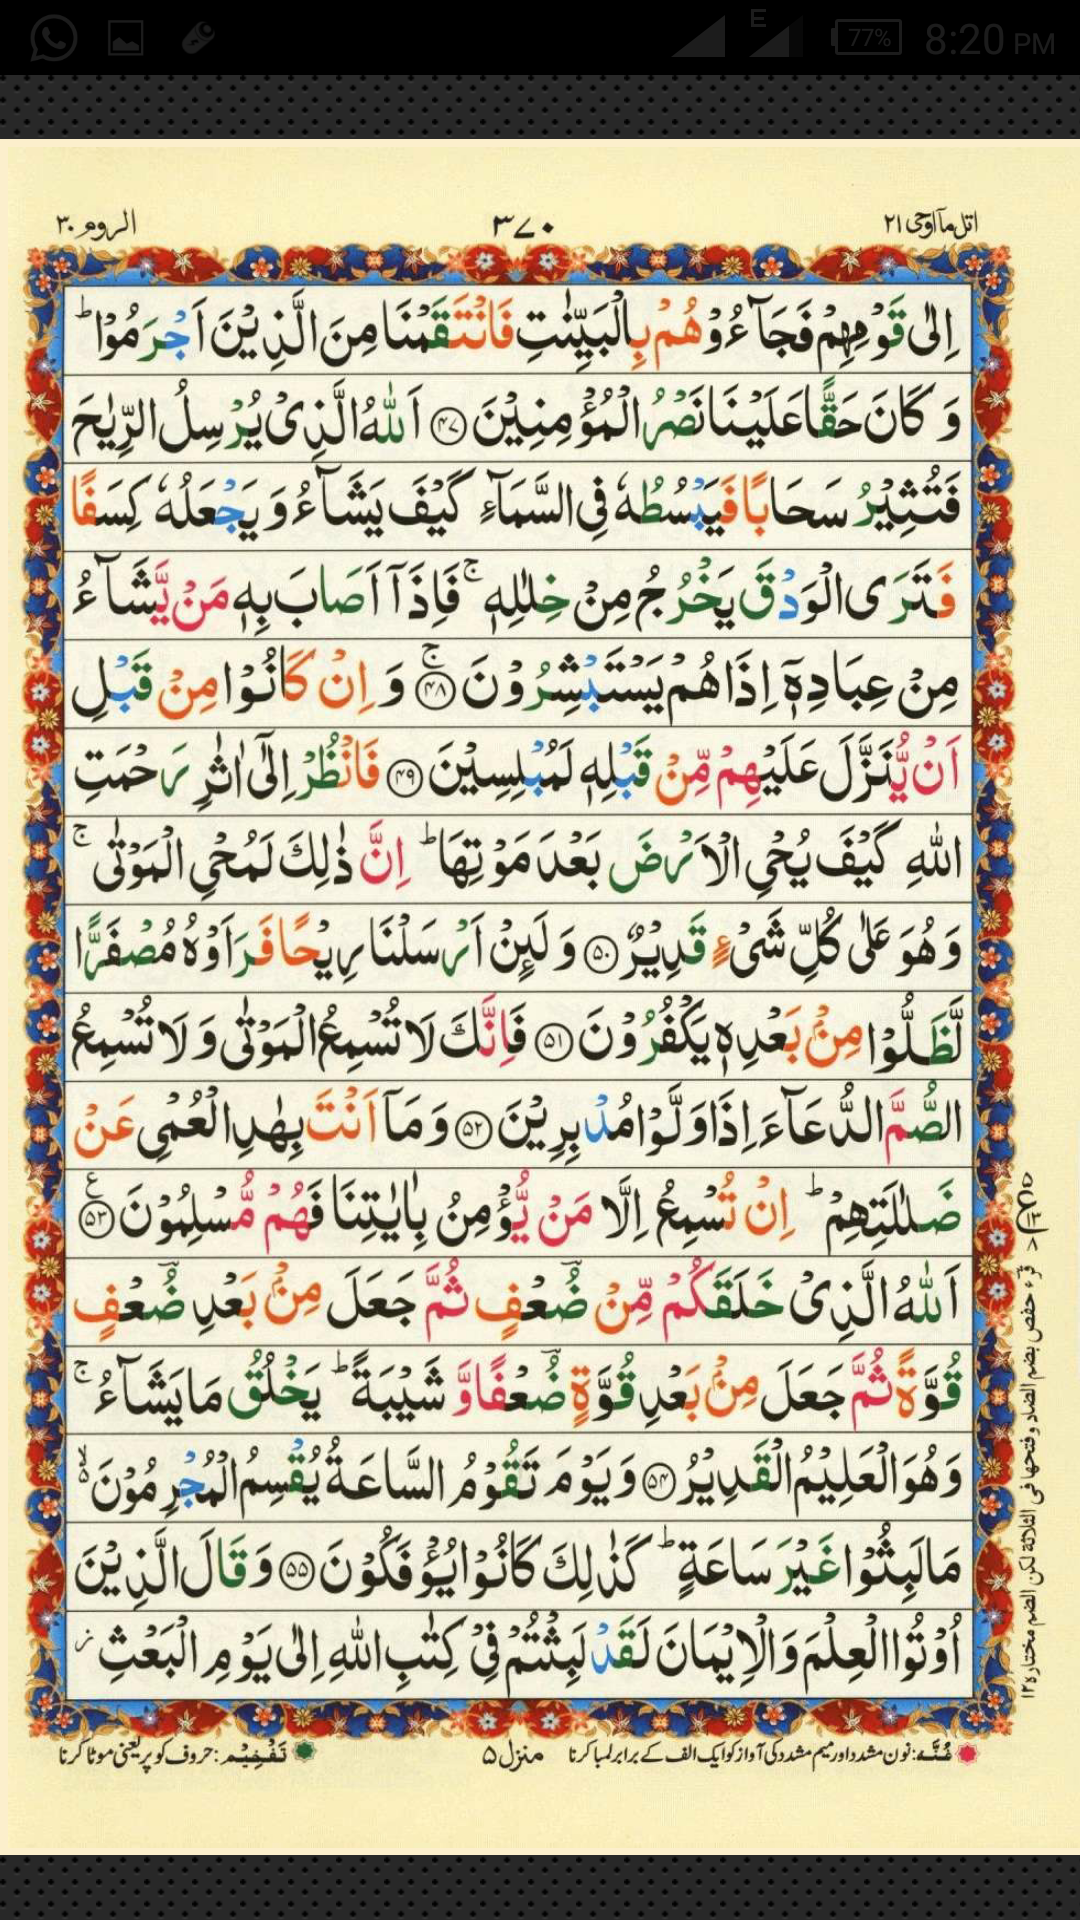 E 77% 8:20 PM
اتل مآ اوحی ۲۱
۳۷۰
الروم ۳۰
اِلٰى قَوْمِهِمْ فَجَآءُوْهُمْ بِالْبَيِّنٰتِ فَانْتَقَمْنَا مِنَ الَّذِيْنَ اَجْرَمُوْا ؕ
وَ كَانَ حَقًّا عَلَيْنَا نَصْرُ الْمُؤْمِنِيْنَ ﴿۴۷﴾ اَللّٰهُ الَّذِىْ يُرْسِلُ الرِّيٰحَ
فَتُثِيْرُ سَحَابًا فَيَبْسُطُهٗ فِى السَّمَآءِ كَيْفَ يَشَآءُ وَ يَجْعَلُهٗ كِسَفًا
فَتَرَى الْوَدْقَ يَخْرُجُ مِنْ خِلٰلِهٖ ۚ فَاِذَاۤ اَصَابَ بِهٖ مَنْ يَّشَآءُ
مِنْ عِبَادِهٖۤ اِذَا هُمْ يَسْتَبْشِرُوْنَ ﴿۴۸﴾ ۚ وَ اِنْ كَانُوْا مِنْ قَبْلِ
اَنْ يُّنَزَّلَ عَلَيْهِمْ مِّنْ قَبْلِهٖ لَمُبْلِسِيْنَ ﴿۴۹﴾ فَانْظُرْ اِلٰٓى اٰثٰرِ رَحْمَتِ
اللّٰهِ كَيْفَ يُحْىِ الْاَرْضَ بَعْدَ مَوْتِهَا ؕ اِنَّ ذٰلِكَ لَمُحْىِ الْمَوْتٰى ۚ
وَهُوَ عَلٰى كُلِّ شَىْءٍ قَدِيْرٌ ﴿۵۰﴾ وَ لَئِنْ اَرْسَلْنَا رِيْحًا فَرَاَوْهُ مُصْفَرًّا
لَّظَلُّوْا مِنْۢ بَعْدِهٖ يَكْفُرُوْنَ ﴿۵۱﴾ فَاِنَّكَ لَا تُسْمِعُ الْمَوْتٰى وَ لَا تُسْمِعُ
الصُّمَّ الدُّعَآءَ اِذَا وَلَّوْا مُدْبِرِيْنَ ﴿۵۲﴾ وَ مَاۤ اَنْتَ بِهٰدِ الْعُمْىِ عَنْ
ضَلٰلَتِهِمْ ؕ اِنْ تُسْمِعُ اِلَّا مَنْ يُّؤْمِنُ بِاٰيٰتِنَا فَهُمْ مُّسْلِمُوْنَ ﴿۵۳﴾ ع
اَللّٰهُ الَّذِىْ خَلَقَكُمْ مِّنْ ضُؔعْفٍ ثُمَّ جَعَلَ مِنْۢ بَعْدِ ضُؔعْفٍ
قُوَّةً ثُمَّ جَعَلَ مِنْۢ بَعْدِ قُوَّةٍ ضُؔعْفًا وَّ شَيْبَةً ؕ يَخْلُقُ مَا يَشَآءُ ۚ
وَهُوَ الْعَلِيْمُ الْقَدِيْرُ ﴿۵۴﴾ وَ يَوْمَ تَقُوْمُ السَّاعَةُ يُقْسِمُ الْمُجْرِمُوْنَ ۙ۬
مَا لَبِثُوْا غَيْرَ سَاعَةٍ ؕ كَذٰلِكَ كَانُوْا يُؤْفَكُوْنَ ﴿۵۵﴾ وَ قَالَ الَّذِيْنَ
اُوْتُوا الْعِلْمَ وَ الْاِيْمَانَ لَقَدْ لَبِثْتُمْ فِىْ كِتٰبِ اللّٰهِ اِلٰى يَوْمِ الْبَعْثِ ؗ
قرء حفص بضم الضاد و فتحها فی الثلاثة لکن الضم مختار ۱۲
غُنَّه: نون مشدد اور میم مشدد کی آواز کو ایک الف کے برابر لمبا کرنا
منزل ۵
تَفْخِیْم: حروف کو پر یعنی موٹا کرنا